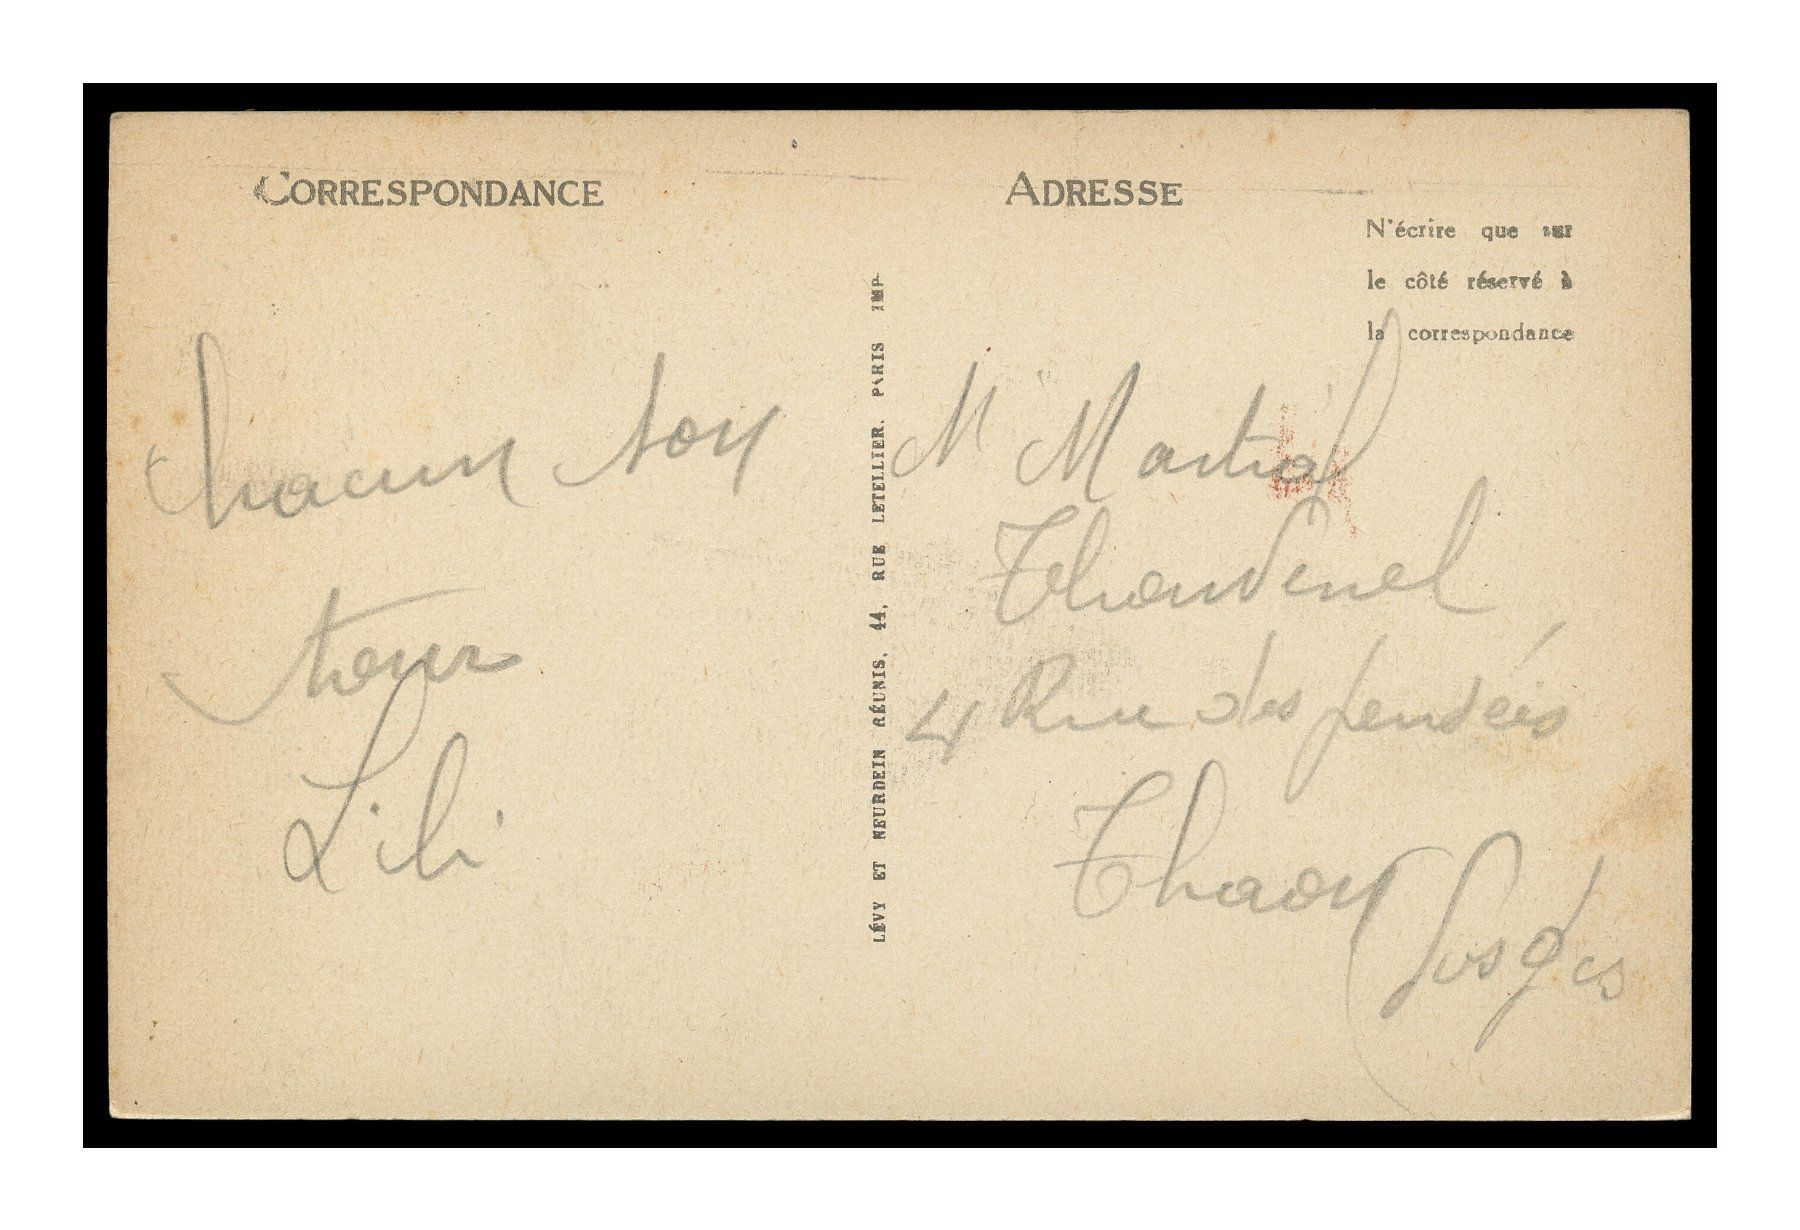 CORRESPONDANCE
Chacun son
tour
Lili
LÉVY ET NEURDEIN RÉUNIS, 44, RUE LETELLIER. PARIS IMP
ADRESSE
N'écrire que sur
le côté réservé à
la correspondance
Mr Martial
Thouvenel
4 Rue des
Thaon
Vosges